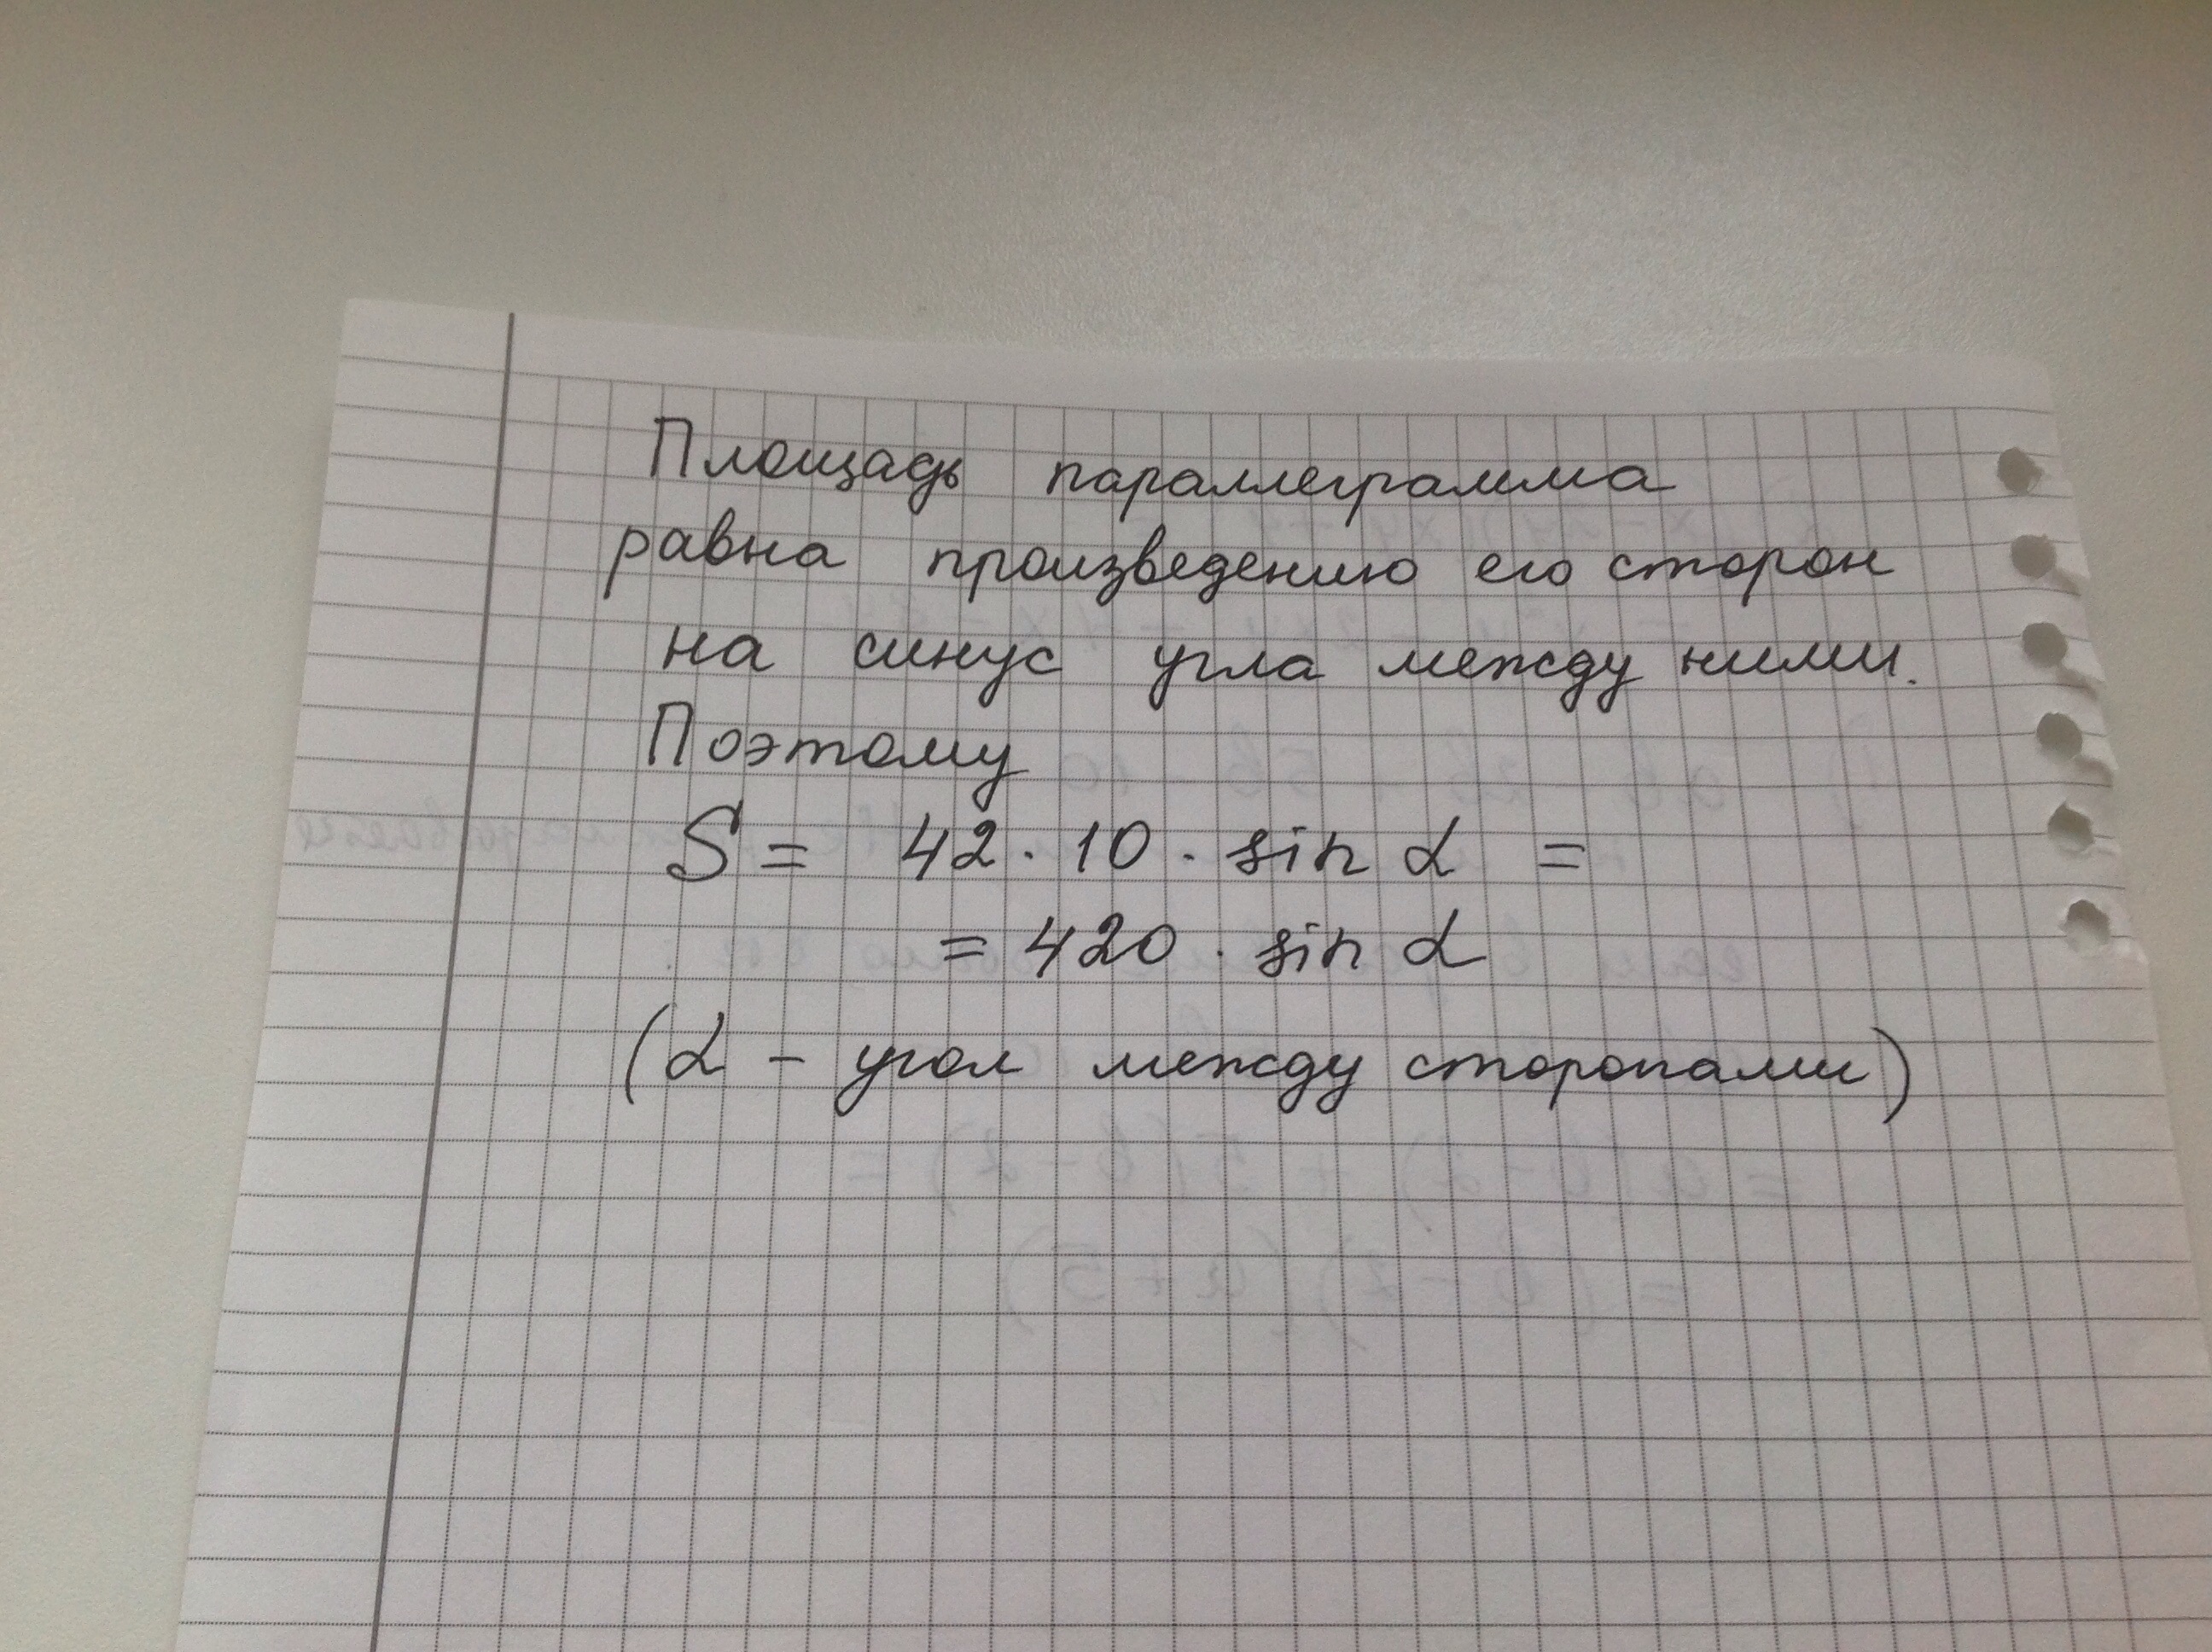 Площадь параллеграмма
равна произведению его сторон
на синус угла между ними.
Поэтому
S = 42 · 10 · sin α =
= 420 · sin α
(α - угол между сторонами)